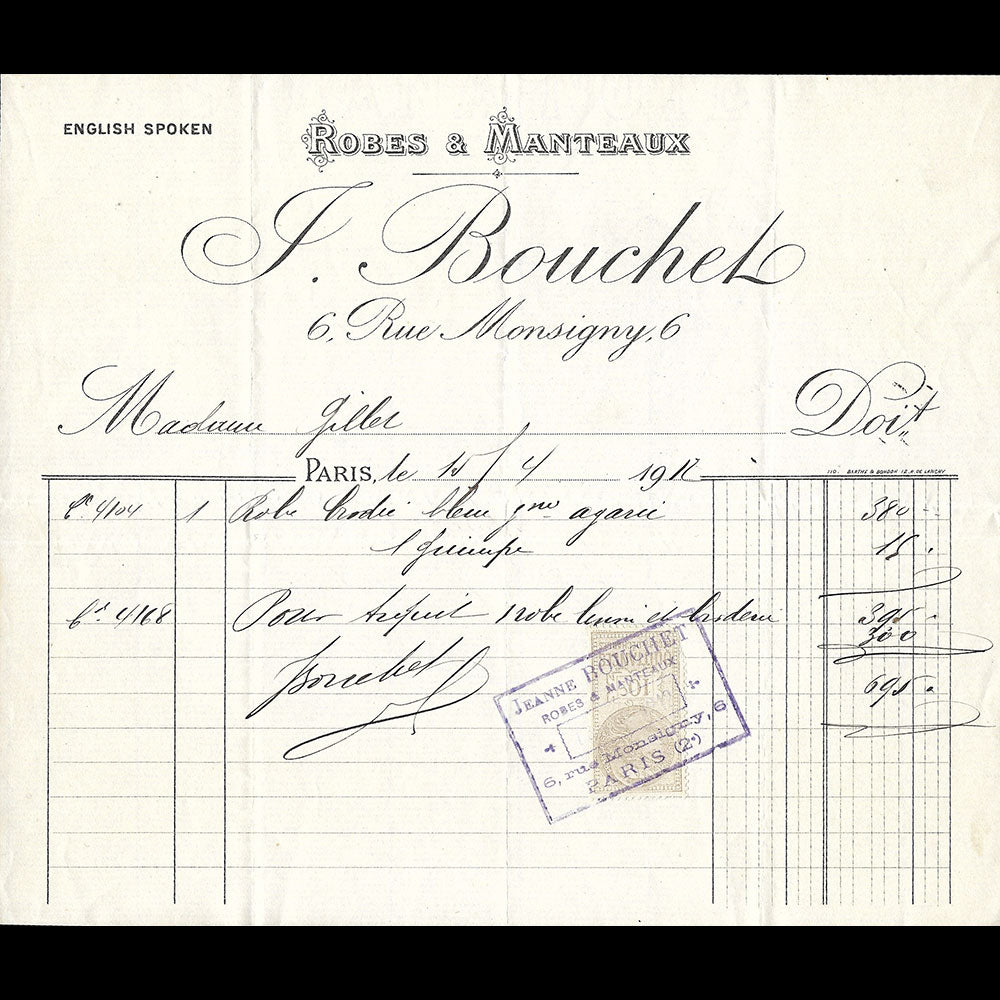 ENGLISH SPOKEN
ROBES & MANTEAUX
J. Bouchet
6, Rue Monsigny, 6
Madame Gillet Doit
PARIS, le 15/4 1912
110. BARTHE & BONDON 12, R. DE LANCRY
4104 1 Robe brodée bleu 380
1 Guimpe 15
395
4168 Pour 1 robe et broderie 300
695
Bouchet
JEANNE BOUCHET
ROBES & MANTEAUX
6, rue Monsigny, 6
PARIS (2e)
10c